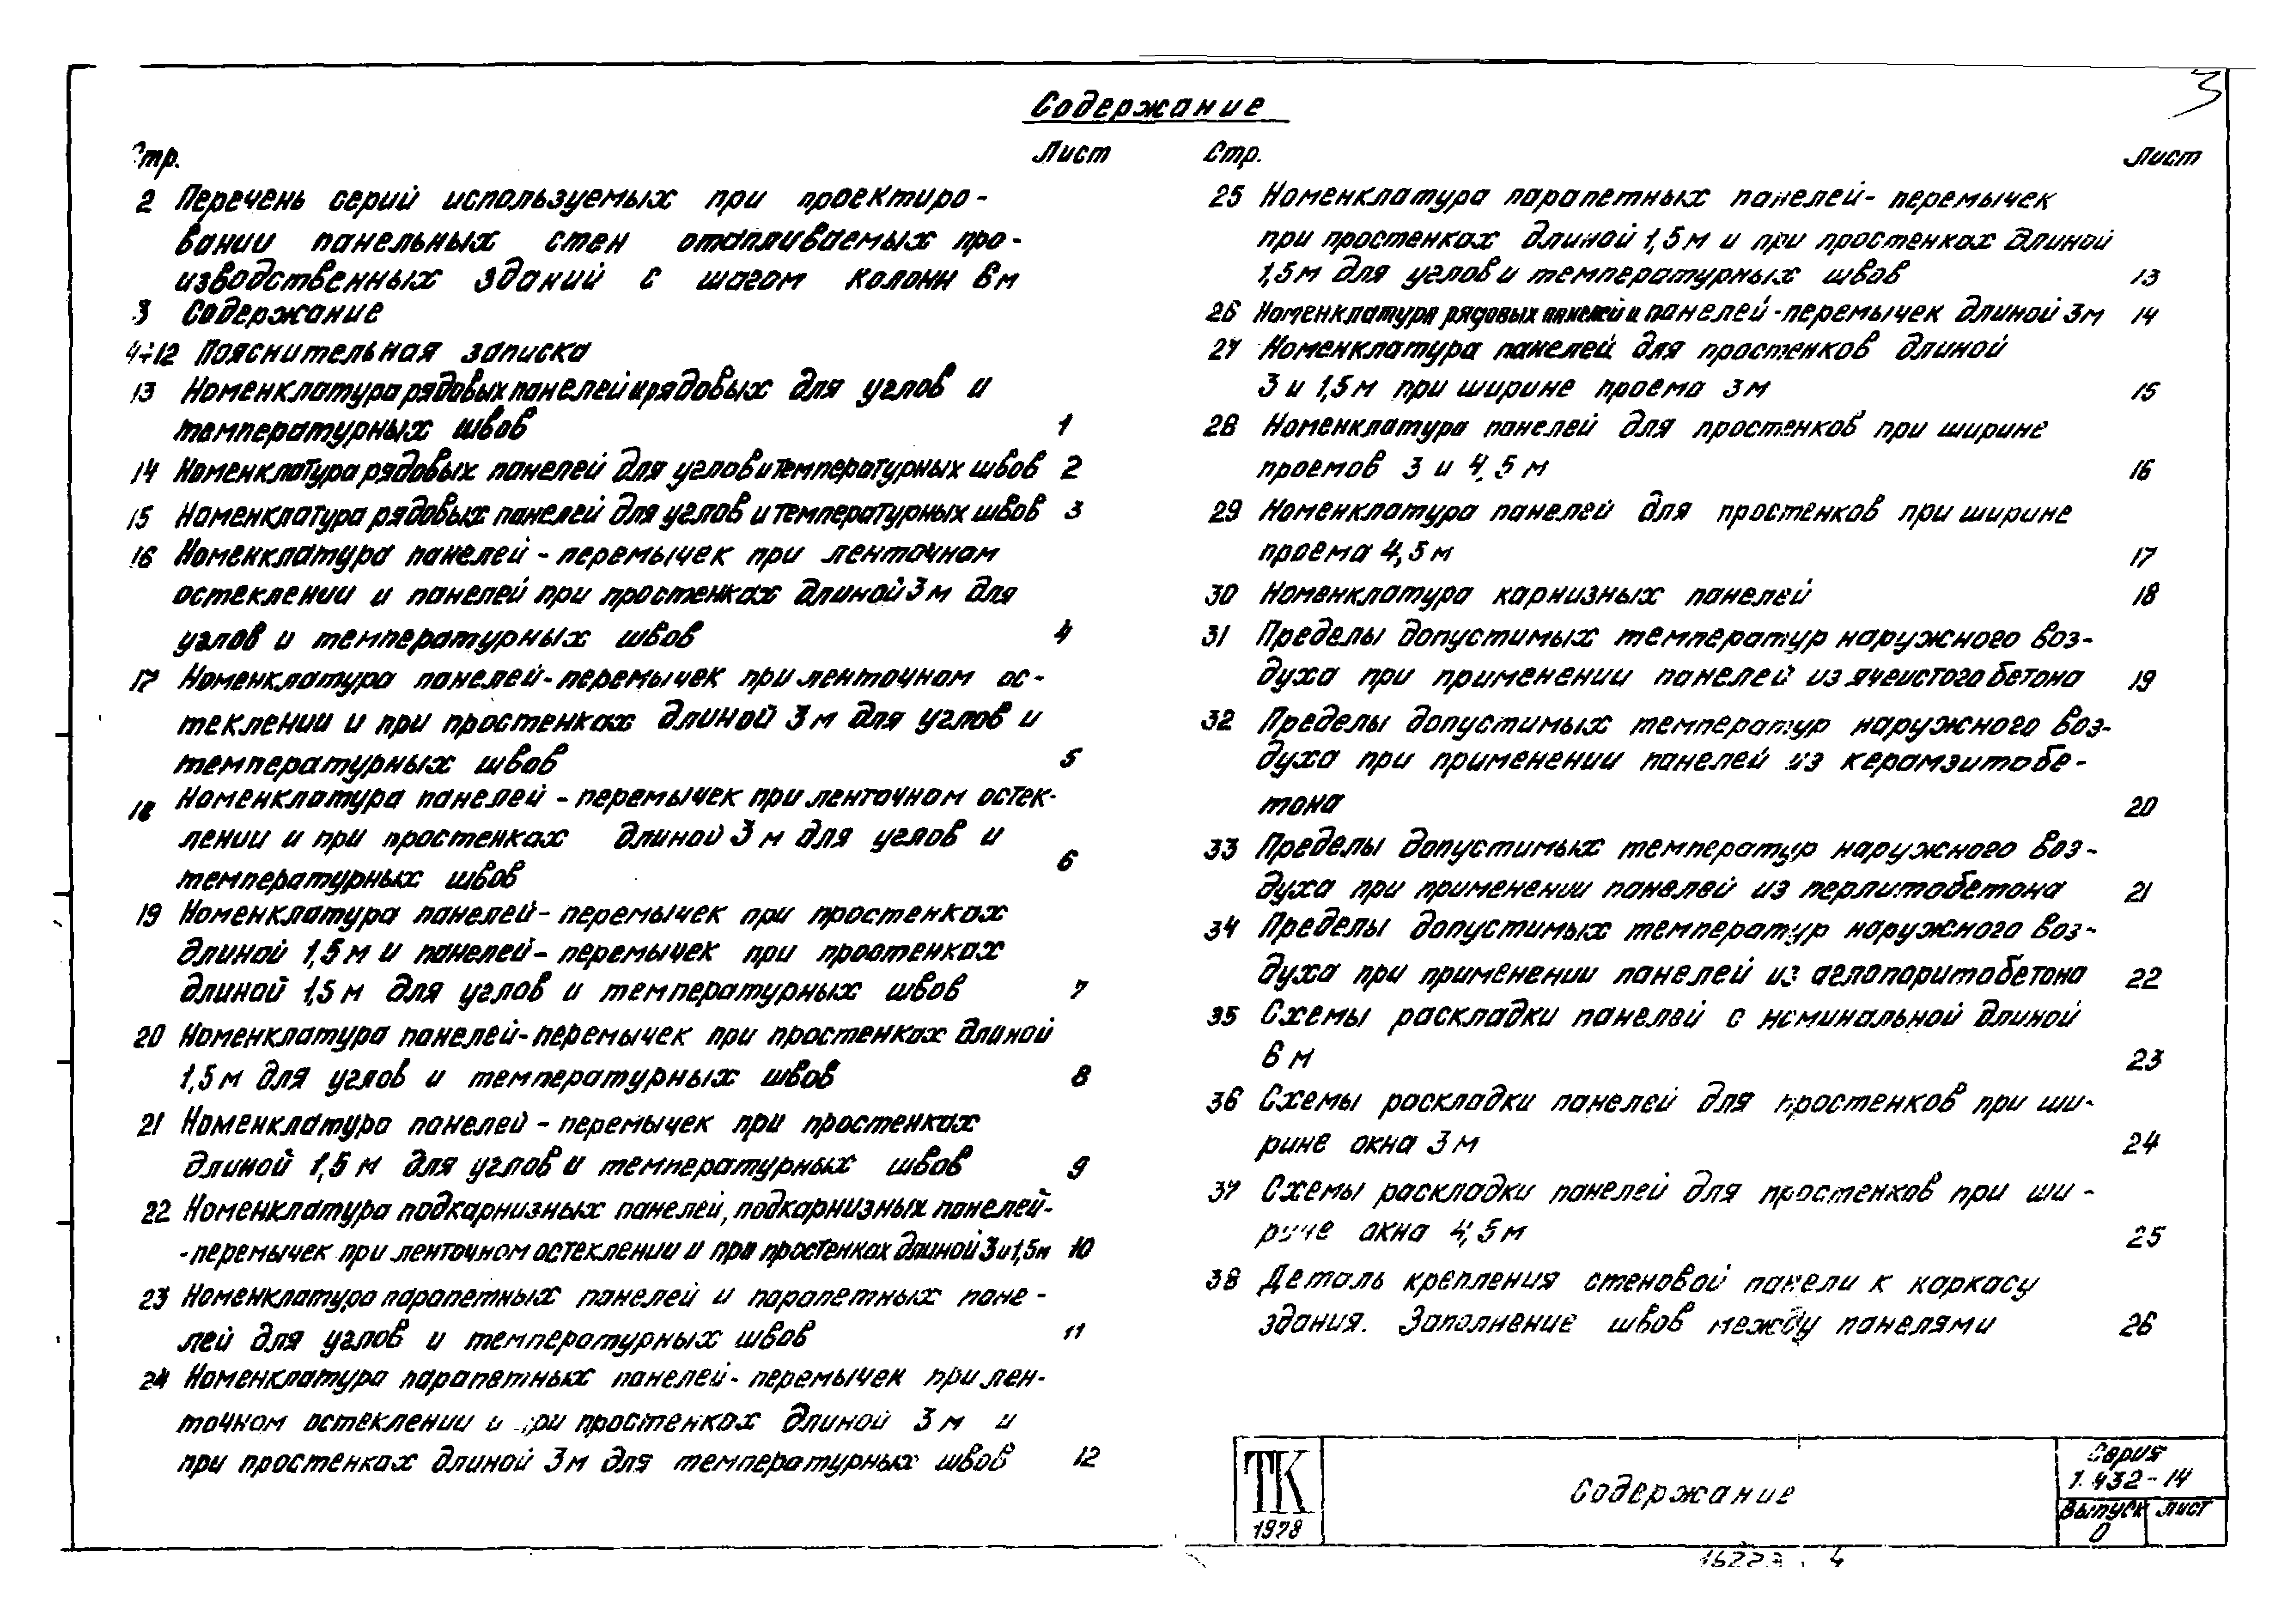 3
Содержание
Стр. Лист
2 Перечень серий используемых при проектиро-
вании панельных стен отапливаемых про-
изводственных зданий с шагом колонн 6м
3 Содержание
4÷12 Пояснительная записка
13 Номенклатура рядовых панелей и рядовых для углов и
температурных швов 1
14 Номенклатура рядовых панелей для углов и температурных швов 2
15 Номенклатура рядовых панелей для углов и температурных швов 3
16 Номенклатура панелей - перемычек при ленточном
остеклении и панелей при простенках длиной 3 м для
углов и температурных швов 4
17 Номенклатура панелей-перемычек при ленточном ос-
теклении и при простенках длиной 3 м для углов и
температурных швов 5
18 Номенклатура панелей - перемычек при ленточном остек-
лении и при простенках длиной 3 м для углов и
температурных швов 6
19 Номенклатура панелей - перемычек при простенках
длиной 1,5 м и панелей - перемычек при простенках
длиной 1,5 м для углов и температурных швов 7
20 Номенклатура панелей-перемычек при простенках длиной
1,5 м для углов и температурных швов 8
21 Номенклатура панелей - перемычек при простенках
длиной 1,5 м для углов и температурных швов 9
22 Номенклатура подкарнизных панелей, подкарнизных панелей-
-перемычек при ленточном остеклении и при простенках длиной 3 и 1,5м 10
23 Номенклатура парапетных панелей и парапетных пане-
лей для углов и температурных швов 11
24 Номенклатура парапетных панелей- перемычек при лен-
точном остеклении и при простенках длиной 3 м и
при простенках длиной 3м для температурных швов 12
Стр. Лист
25 Номенклатура парапетных панелей- перемычек
при простенках длиной 1,5 м и при простенках длиной
1,5 м для углов и температурных швов 13
26 Номенклатура рядовых панелей и панелей-перемычек длиной 3м 14
27 Номенклатура панелей для простенков длиной
3 и 1,5 м при ширине проема 3 м 15
28 Номенклатура панелей для простенков при ширине
проемов 3 и 4,5 м 16
29 Номенклатура панелей для простенков при ширине
проема 4,5 м 17
30 Номенклатура карнизных панелей 18
31 Пределы допустимых температур наружного воз-
духа при применении панелей из ячеистого бетона 19
32 Пределы допустимых температур наружного воз-
духа при применении панелей из керамзитобе-
тона 20
33 Пределы допустимых температур наружного воз-
духа при применении панелей из перлитобетона 21
34 Пределы допустимых температур наружного воз-
духа при применении панелей из аглопоритобетона 22
35 Схемы раскладки панелей с номинальной длиной
6 м 23
36 Схемы раскладки панелей для простенков при ши-
рине окна 3 м 24
37 Схемы раскладки панелей для простенков при ши-
рине окна 4,5 м 25
38 Деталь крепления стеновой панели к каркасу
здания. Заполнение швов между панелями 26
ТК
1978
Содержание
Серия
1.432-14
Выпуск Лист
0
4